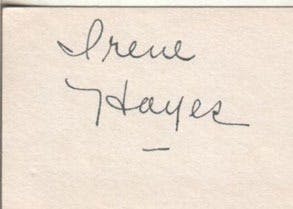 Irene
Hayes